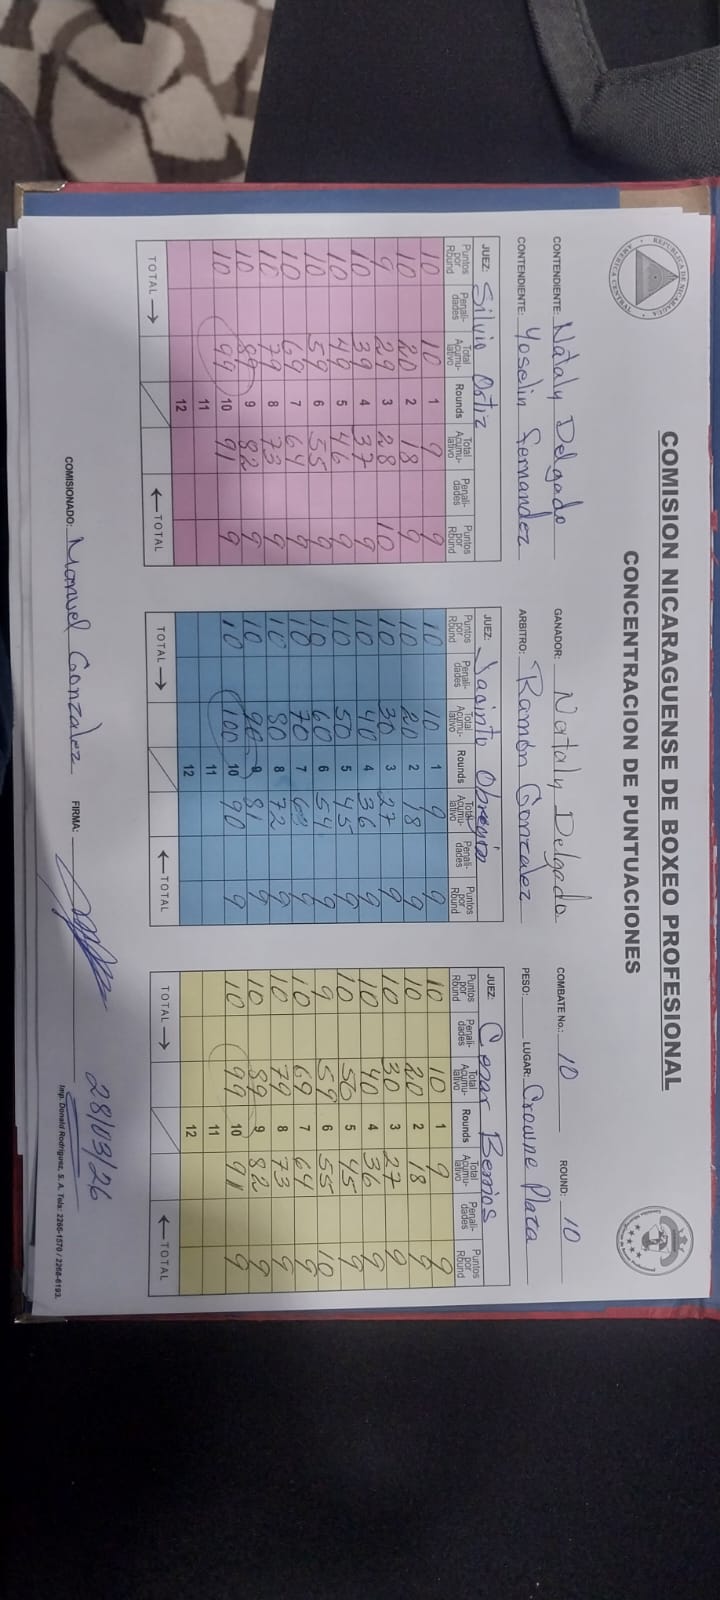 COMISION NICARAGUENSE DE BOXEO PROFESIONAL
CONCENTRACION DE PUNTUACIONES
REPUBLICA DE NICARAGUA
AMERICA CENTRAL
CONTENDIENTE: Nataly Delgado GANADOR: Nataly Delgado COMBATE No.: 10 ROUND: 10
CONTENDIENTE: Yoselin Fernandez ARBITRO: Ramón Gonzalez PESO: LUGAR: Crowne Plaza
JUEZ: Silvio Ortiz
Puntos por Round Penalidades Total Acumulativo Rounds Total Acumulativo Penalidades Puntos por Round
10 10 1 9 9
10 20 2 18 9
9 29 3 28 10
10 39 4 37 9
10 49 5 46 9
10 59 6 55 9
10 69 7 64 9
10 79 8 73 9
10 89 9 82 9
10 99 10 91 9
11
12
TOTAL → ← TOTAL
JUEZ: Jacinto Obregón
Puntos por Round Penalidades Total Acumulativo Rounds Total Acumulativo Penalidades Puntos por Round
10 10 1 9 9
10 20 2 18 9
10 30 3 27 9
10 40 4 36 9
10 50 5 45 9
10 60 6 54 9
10 70 7 63 9
10 80 8 72 9
10 90 9 81 9
10 100 10 90 9
11
12
TOTAL → ← TOTAL
JUEZ: Cesar Berrios
Puntos por Round Penalidades Total Acumulativo Rounds Total Acumulativo Penalidades Puntos por Round
10 10 1 9 9
10 20 2 18 9
10 30 3 27 9
10 40 4 36 9
10 50 5 45 9
9 59 6 55 10
10 69 7 64 9
10 79 8 73 9
10 89 9 82 9
10 99 10 91 9
11
12
TOTAL → ← TOTAL
COMISIONADO: Manuel Gonzalez FIRMA: 28/03/26
Imp. Donald Rodríguez, S. A. Tels: 2266-1570 / 2266-6193.